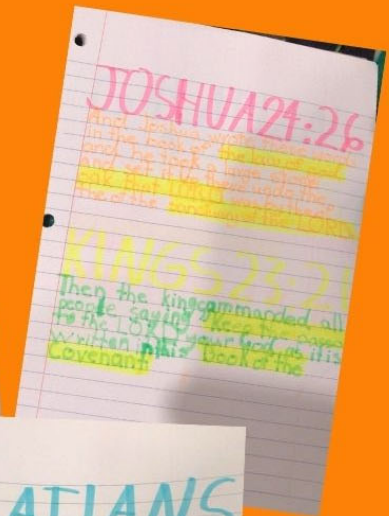 JOSHUA 24:26
And Joshua wrote these words
in the book of the law of God
and he took a large stone
and set it up there under the
oak that
the of the sanctuary of the LORD
KINGS 23:21
Then the king cammanded all
people saying Keep the
to the LORD your God, as it is
written in this Book of the
Covenant
ATIANS